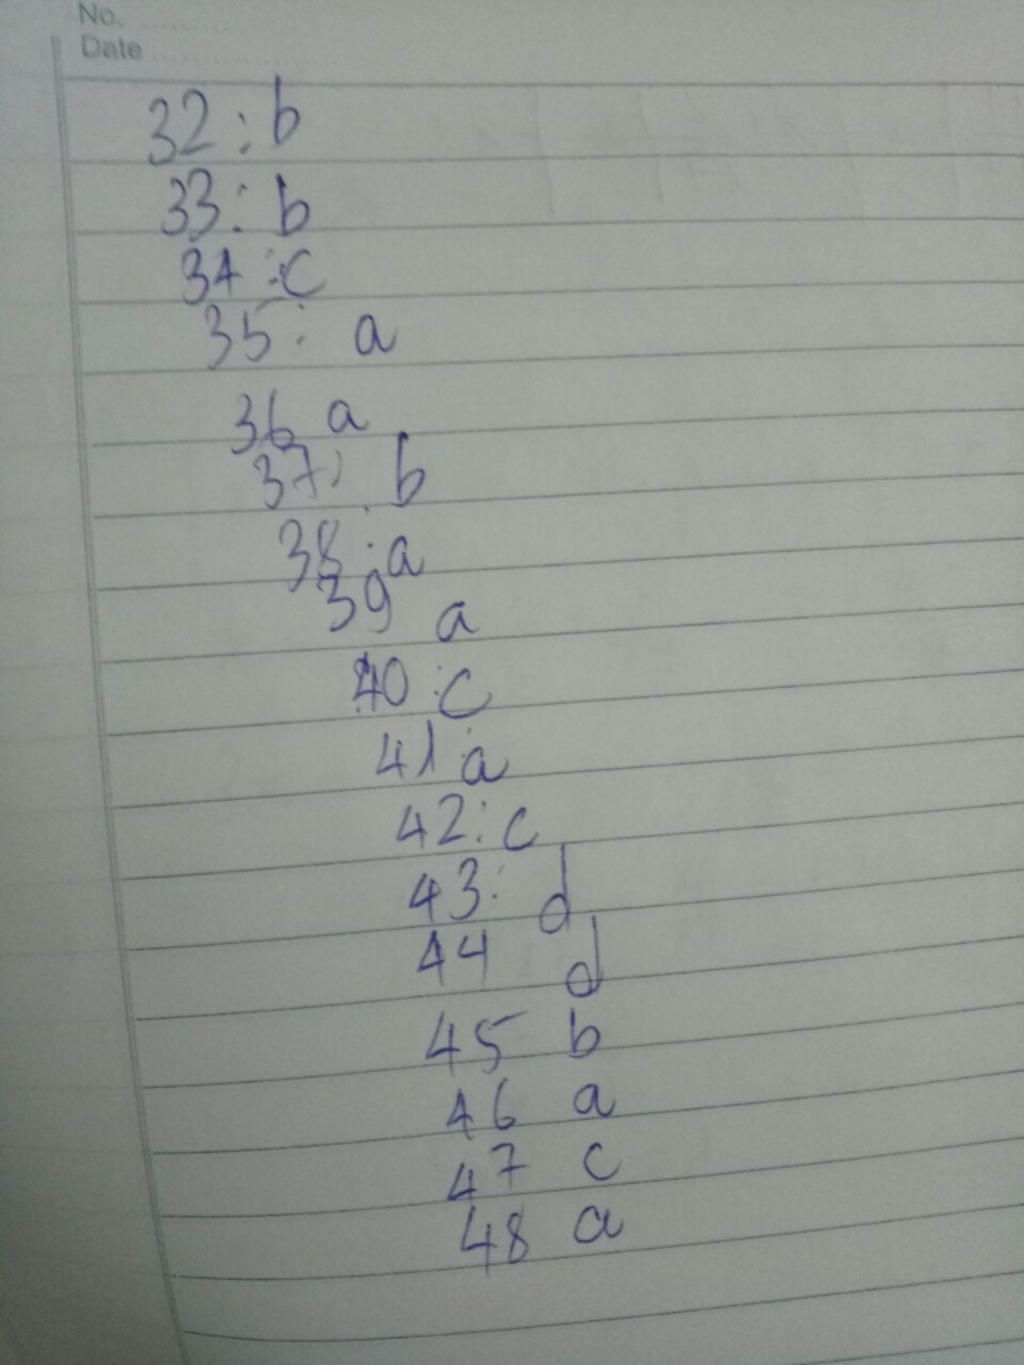 No.
Date
32: b
33: b
34: c
35: a
36 a
37: b
38: a
39 a
40: c
41: a
42: c
43: d
44 d
45 b
46 a
47 c
48 a